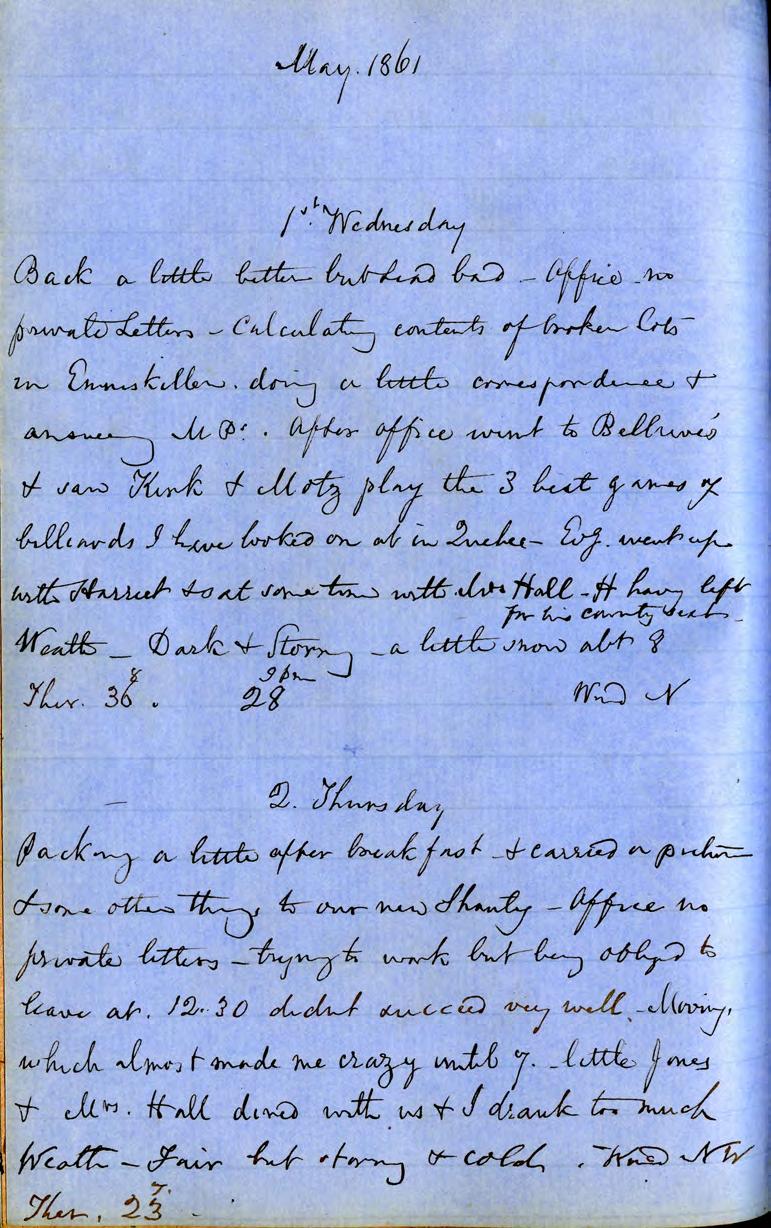 May. 1861
1st. Wednesday
Back a little better but head bad - Office no
private Letters - Calculating contents of broken lots
in Enniskillen. doing a little correspondence &
answering M P's. After office went to
& saw Kink & Motz play the 3 best games of
billiards I have looked on at in Quebec - Evg. went up
with Harriet & sat some time with Mrs Hall - H having left
for his county seat -
Weath - Dark & Stormy - a little snow abt 8
8 9 pm
Ther. 36. 28 Wind N
2. Thursday
Packing a little after breakfast & carried a picture
& some other things to our new Shanty - Office no
private letters - trying to work but being obliged to
leave at. 12.30 didnt succeed very well. - Moving,
which almost made me crazy until 7. - little Jones
& Mrs. Hall dined with us & I drank too much
Weath - Fair but stormy & cold. Wind NW
7.
Ther. 23 -